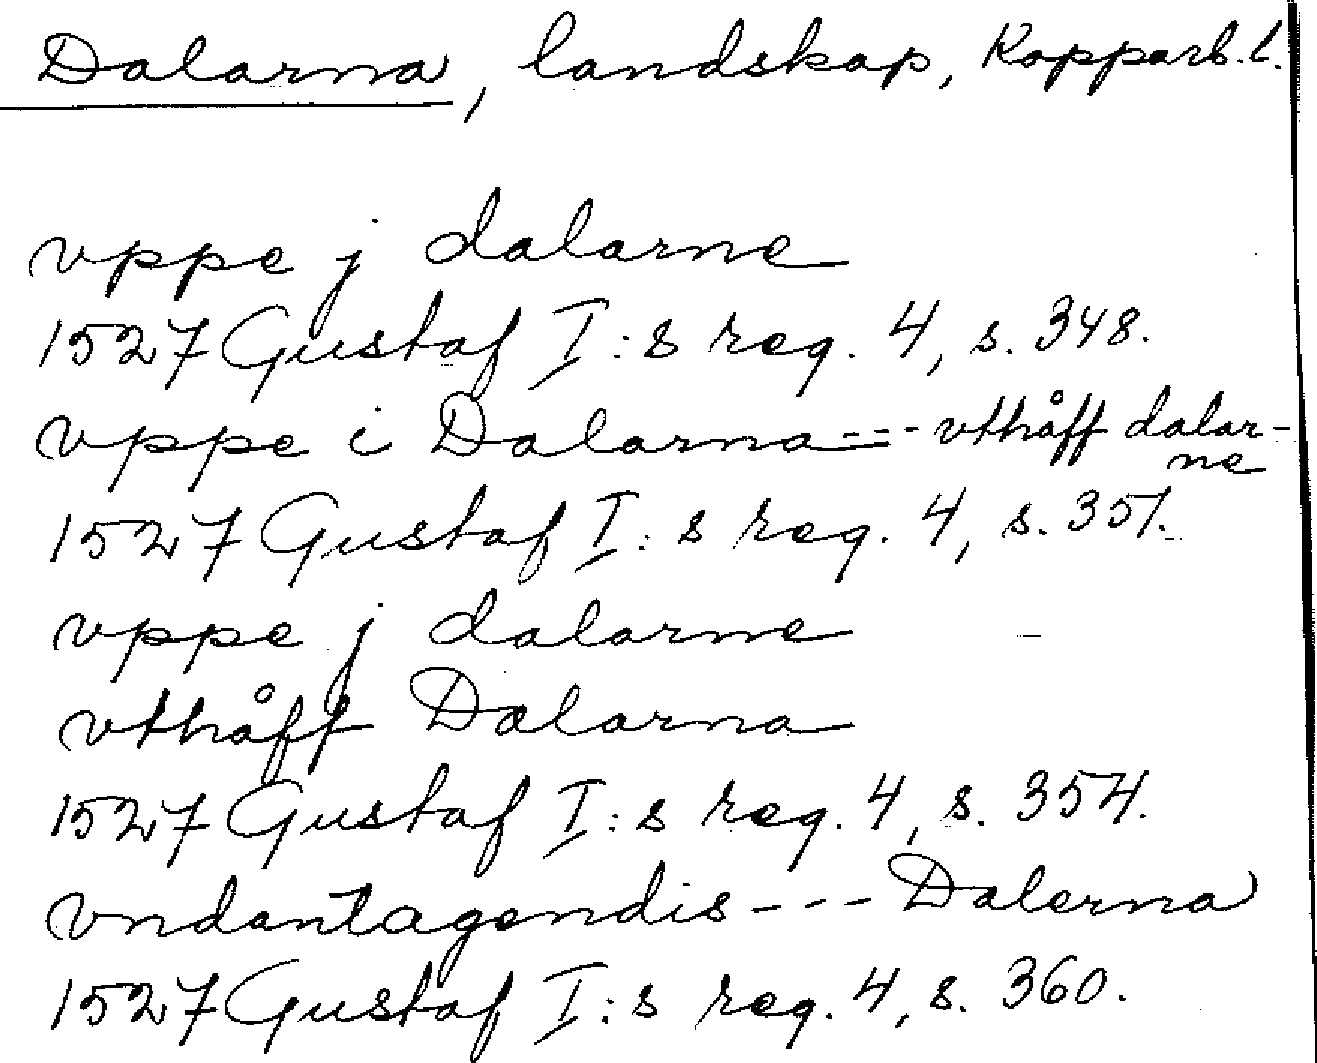 Dalarna, landskap, Kopparb. l.
vppe j dalarne
1527 Gustaf I:s reg. 4, s. 348.
vppe i Dalarna --- vthåff dalar-
ne
1527 Gustaf I:s reg. 4, s. 351.
vppe j dalarne
vthåff Dalarna
1527 Gustaf I:s reg. 4, s. 354.
vndantagendis --- Dalerna
1527 Gustaf I:s reg. 4, s. 360.